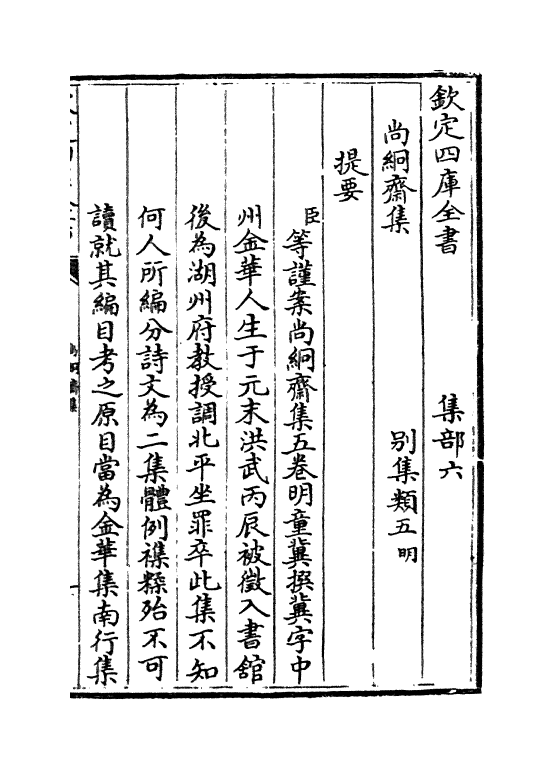 欽定四庫全書　集部六
尚絅齋集　别集類五明
提要
臣等謹案尚絅齋集五卷明童冀撰冀字中
州金華人生于元末洪武丙辰被徵入書舘
後為湖州府教授調北平坐罪卒此集不知
何人所編分詩文為二集體例襍糅殆不可
讀就其編目考之原目當為金華集南行集